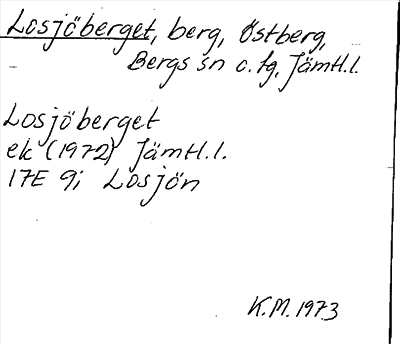 Losjöberget, berg, Östberg,
Bergs sn o. tg, Jämtl.l.
Losjöberget
ek (1972) Jämtl.l.
17E 9i Losjön
K.M. 1973